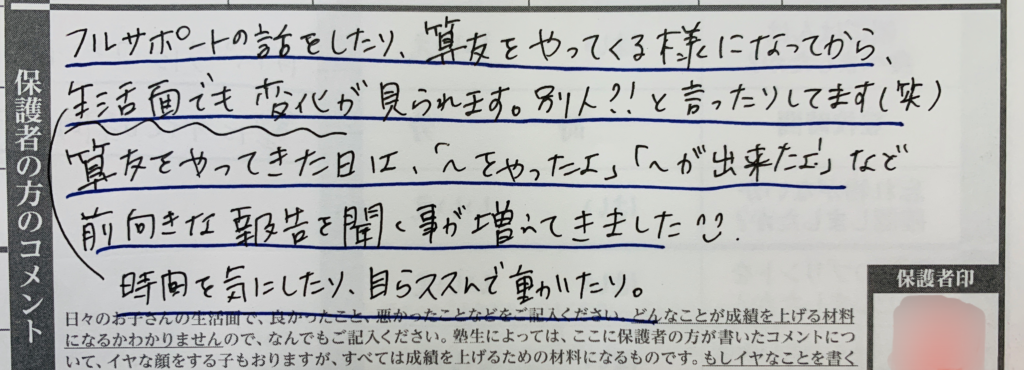 保護者の方のコメント
フルサポートの話をしたり、算友をやってくる様になってから、
生活面でも変化が見られます。別人?!と言ったりしてます(笑)
算友をやってきた日は、「〜をやったよ」「〜が出来たよ」など
前向きな報告を聞く事が増えてきました
時間を気にしたり、自らススんで動いたり。
保護者印
日々のお子さんの生活面で、良かったこと、悪かったことなどをご記入ください。どんなことが成績を上げる材料
になるかわかりませんので、なんでもご記入ください。塾生によっては、ここに保護者の方が書いたコメントについ
て、イヤな顔をする子もおりますが、すべては成績を上げるための材料になるものです。もしイヤなことを書く